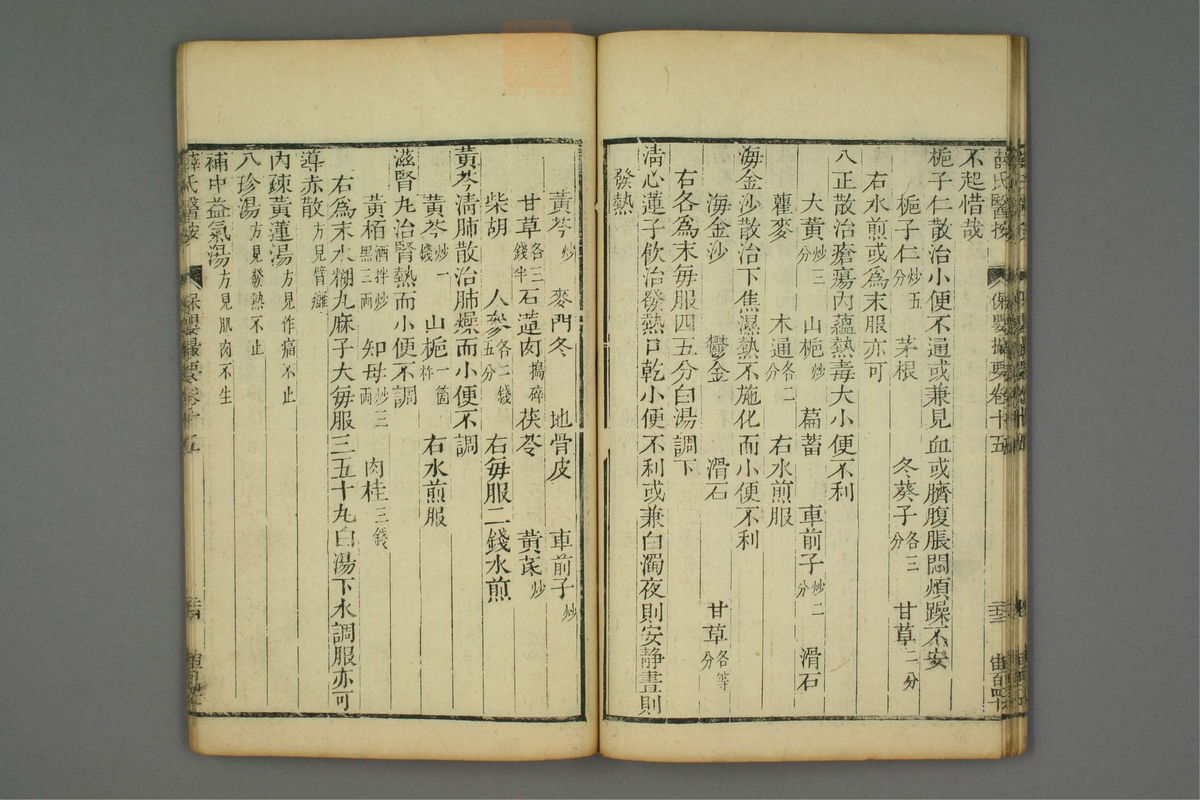 不起惜哉
梔子仁散治小便不通或兼見血或臍腹脹悶煩躁不安
梔子仁炒五分 茅根 冬葵子各三分 甘草二分
右水煎或爲末服亦可
八正散治瘡瘍內蘊熱毒大小便不利
大黃炒三分 山梔炒 萹蓄 車前子炒二分 滑石
瞿麥 木通各二分 右水煎服
海金沙散治下焦濕熱不施化而小便不利
海金沙 鬱金 滑石 甘草各等分
右各爲末每服四五分白湯調下
清心蓮子飲治發熱口乾小便不利或兼白濁夜則安静晝則
發熱
黃芩炒 麥門冬 地骨皮 車前子炒
甘草各三錢半 石蓮肉搗碎 茯苓 黃芪炒
柴胡 人參各二錢五分 右每服二錢水煎
黃芩清肺散治肺燥而小便不調
黃芩炒一錢 山梔一箇杵 右水煎服
滋腎丸治腎熱而小便不調
黃栢酒拌炒黑三兩 知母炒三兩 肉桂三錢
右爲末水糊丸麻子大每服三五十丸白湯下水調服亦可
導赤散方見臂癰
內疎黃蓮湯方見作痛不止
八珍湯方見發熱不止
補中益氣湯方見肌肉不生
薛氏醫按 保嬰撮要卷十五